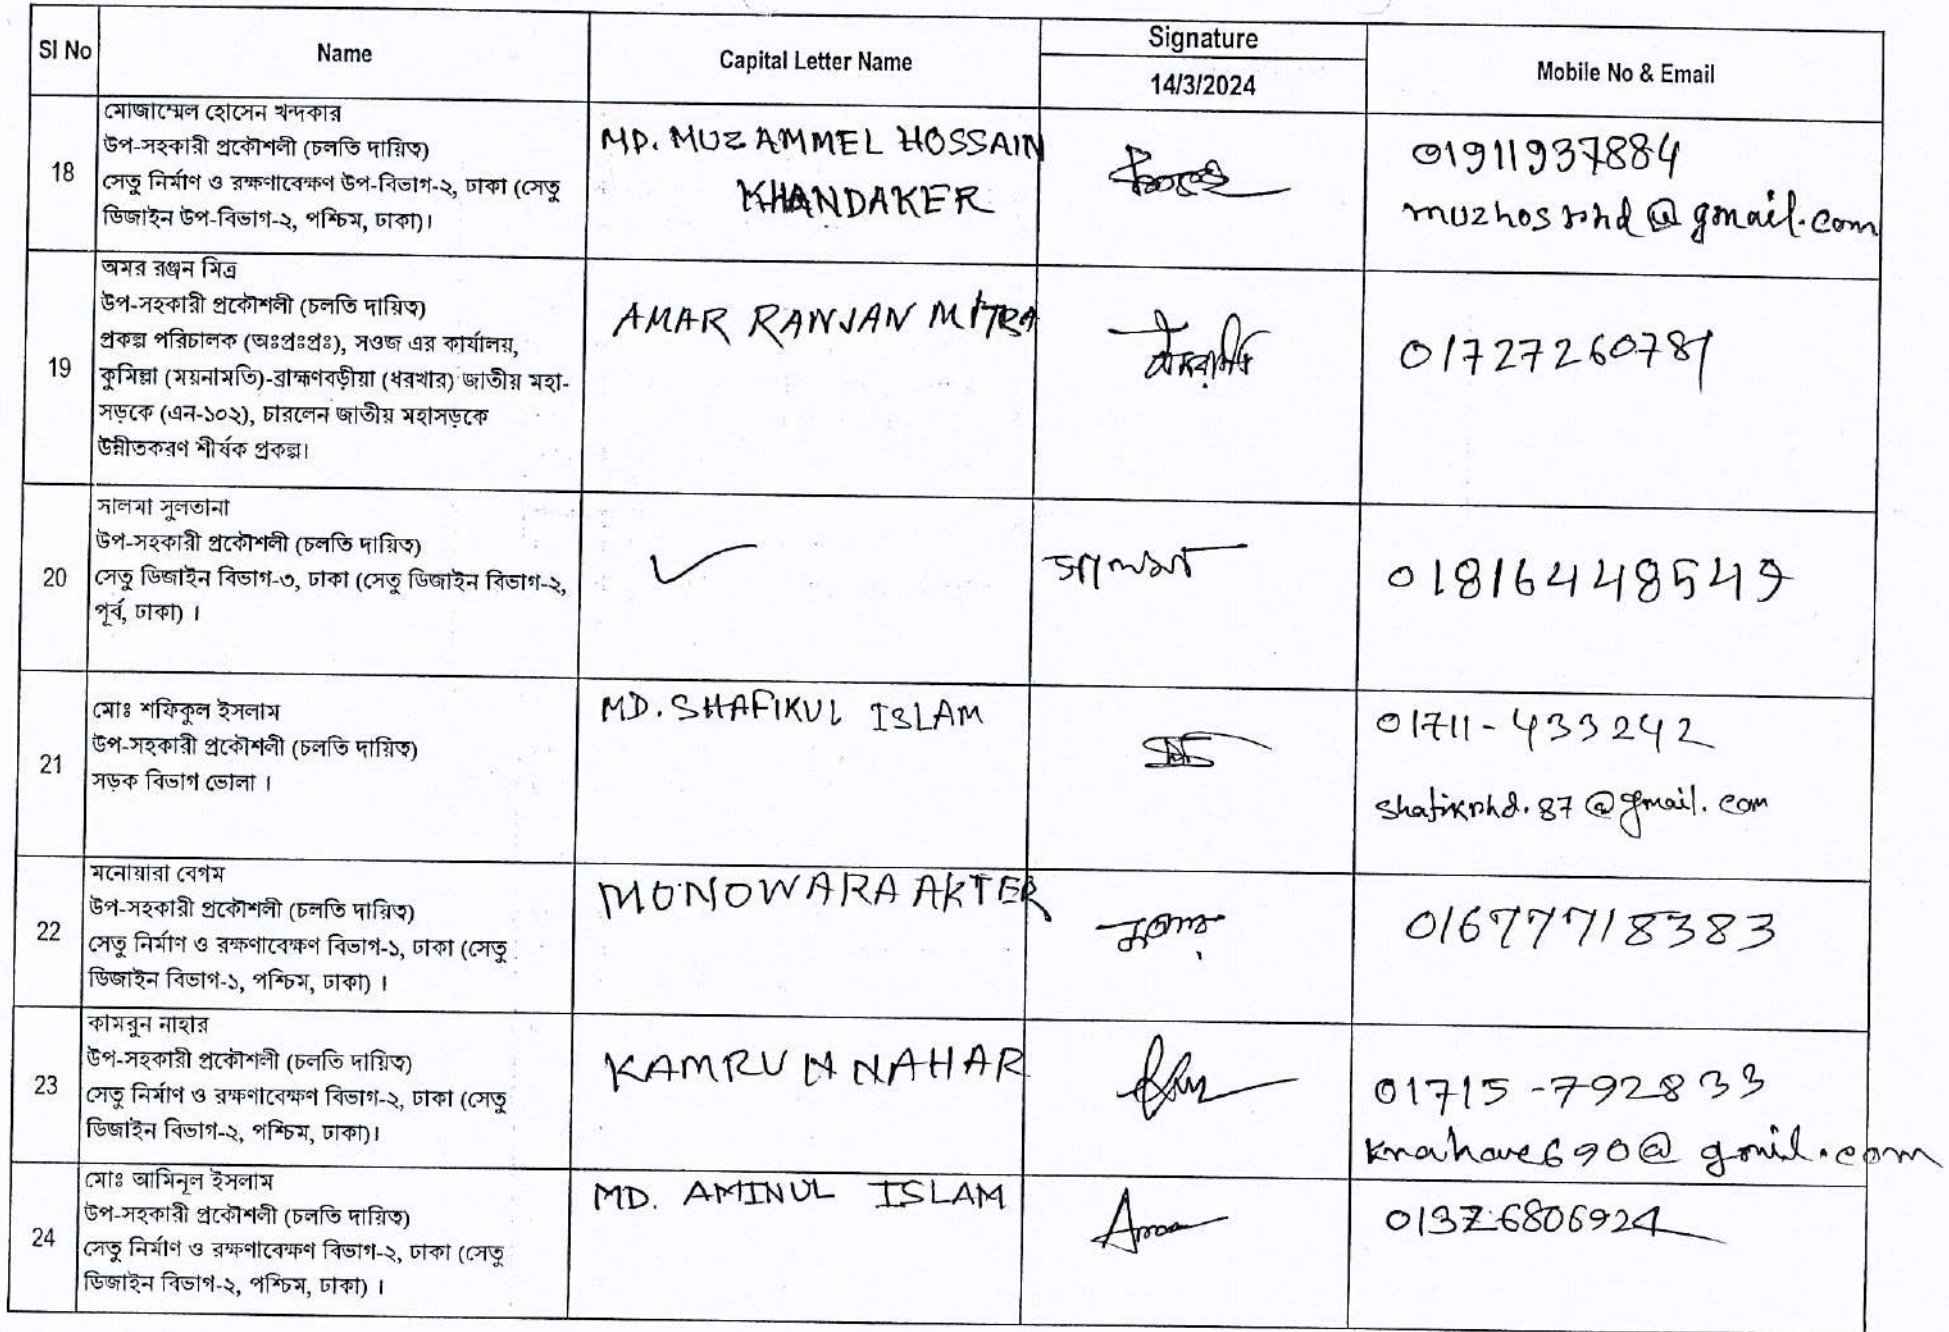 Sl No
Name
Capital Letter Name
Signature
14/3/2024
Mobile No & Email
18
মোজাম্মেল হোসেন খন্দকার
উপ-সহকারী প্রকৌশলী (চলতি দায়িত্ব)
সেতু নির্মাণ ও রক্ষণাবেক্ষণ উপ-বিভাগ-২, ঢাকা (সেতু
ডিজাইন উপ-বিভাগ-২, পশ্চিম, ঢাকা)।
MD. MUZAMMEL HOSSAIN
KHANDAKER
01911937884
muzhosrhd@gmail.com
19
অমর রঞ্জন মিত্র
উপ-সহকারী প্রকৌশলী (চলতি দায়িত্ব)
প্রকল্প পরিচালক (অঃপ্রঃপ্রঃ), সওজ এর কার্যালয়,
কুমিল্লা (ময়নামতি)-ব্রাহ্মণবড়ীয়া (ধরখার) জাতীয় মহা-
সড়কে (এন-১০২), চারলেন জাতীয় মহাসড়কে
উন্নীতকরণ শীর্ষক প্রকল্প।
AMAR RANJAN MITRA
01727260781
20
সালমা সুলতানা
উপ-সহকারী প্রকৌশলী (চলতি দায়িত্ব)
সেতু ডিজাইন বিভাগ-৩, ঢাকা (সেতু ডিজাইন বিভাগ-২,
পূর্ব, ঢাকা) ।
সালমা
01816448549
21
মোঃ শফিকুল ইসলাম
উপ-সহকারী প্রকৌশলী (চলতি দায়িত্ব)
সড়ক বিভাগ ভোলা ।
MD. SHAFIKUL ISLAM
01711-433242
shafikrhd.87@gmail.com
22
মনোয়ারা বেগম
উপ-সহকারী প্রকৌশলী (চলতি দায়িত্ব)
সেতু নির্মাণ ও রক্ষণাবেক্ষণ বিভাগ-১, ঢাকা (সেতু
ডিজাইন বিভাগ-১, পশ্চিম, ঢাকা) ।
MONOWARA AKTER
01677718383
23
কামরুন নাহার
উপ-সহকারী প্রকৌশলী (চলতি দায়িত্ব)
সেতু নির্মাণ ও রক্ষণাবেক্ষণ বিভাগ-২, ঢাকা (সেতু
ডিজাইন বিভাগ-২, পশ্চিম, ঢাকা)।
KAMRUN NAHAR
01715-792833
24
মোঃ আমিনূল ইসলাম
উপ-সহকারী প্রকৌশলী (চলতি দায়িত্ব)
সেতু নির্মাণ ও রক্ষণাবেক্ষণ বিভাগ-২, ঢাকা (সেতু
ডিজাইন বিভাগ-২, পশ্চিম, ঢাকা) ।
MD. AMINUL ISLAM